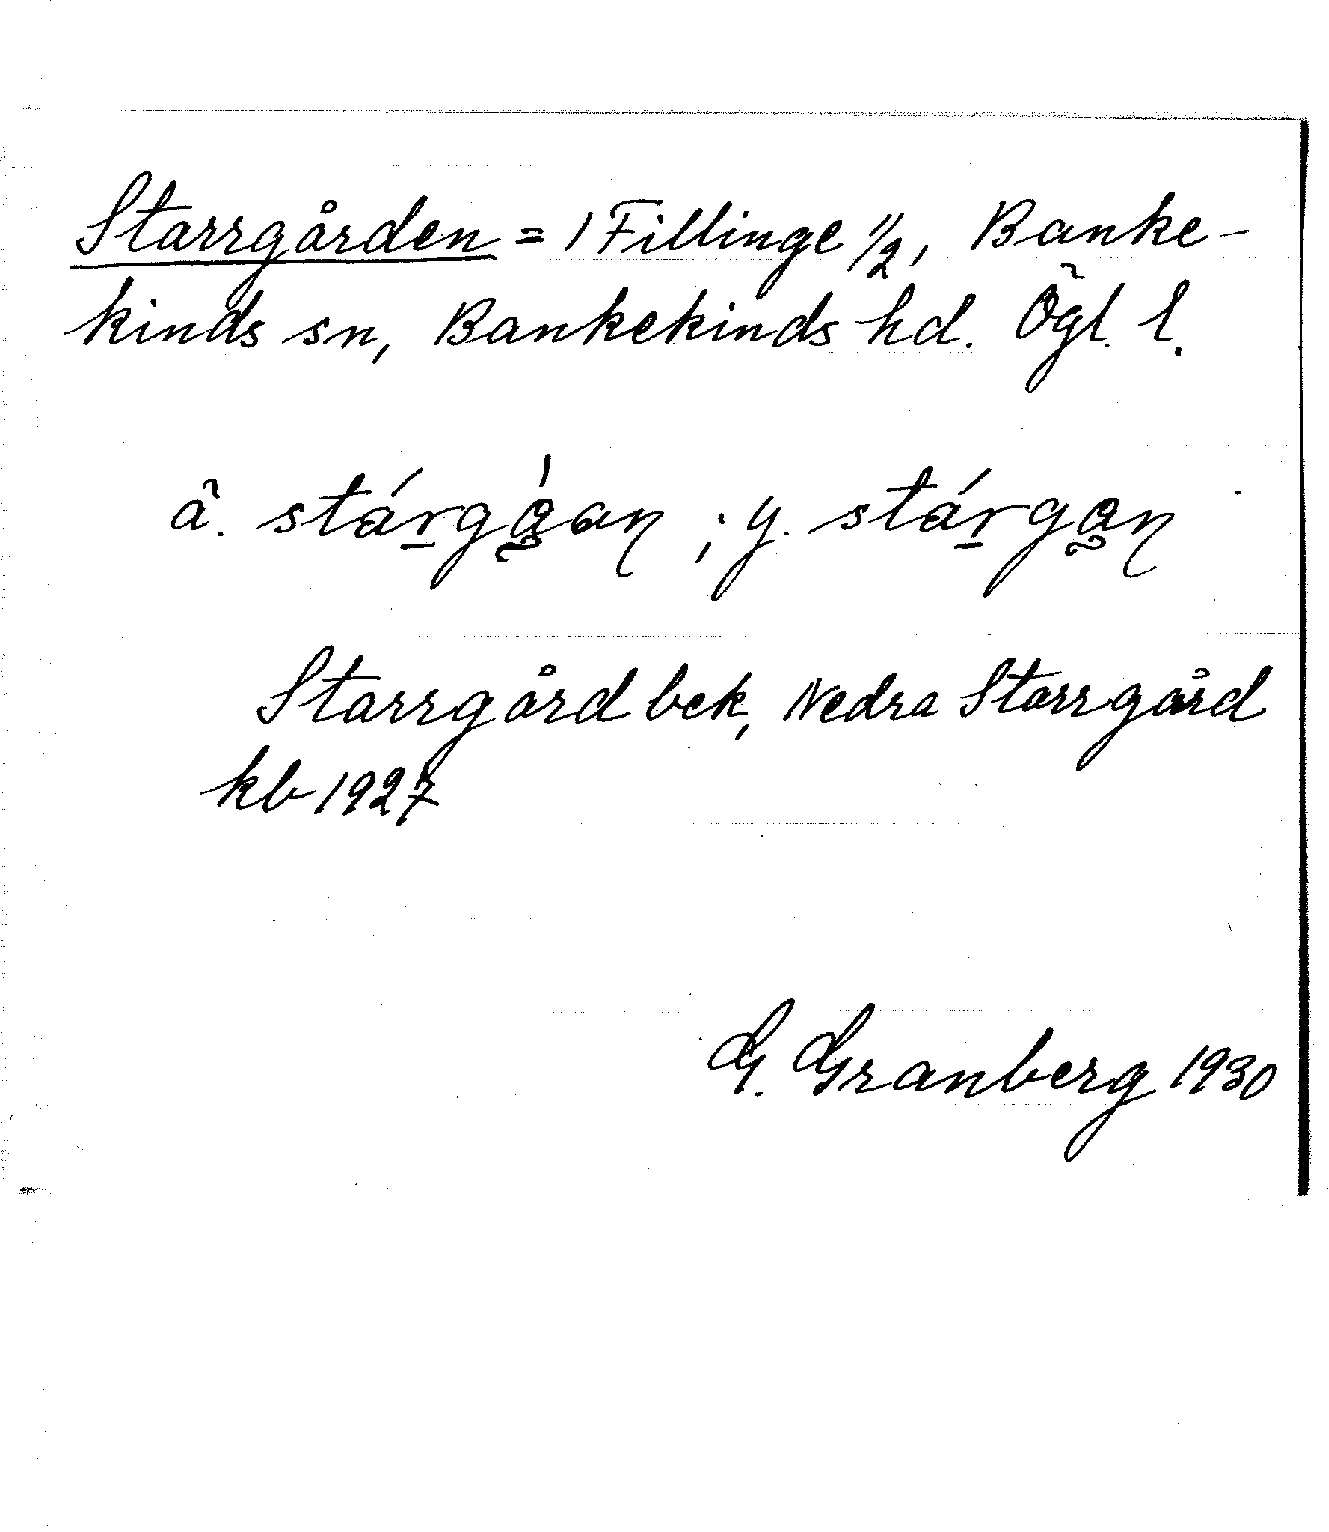 Starrgården = 1 Fillinge 1/2, Banke-
kinds sn, Bankekinds hd. Ögl. l.
ä. stárgån ; y. stárgan
Starrgård bek, Nedra Starrgård
kb 1927
G. Granberg 1930